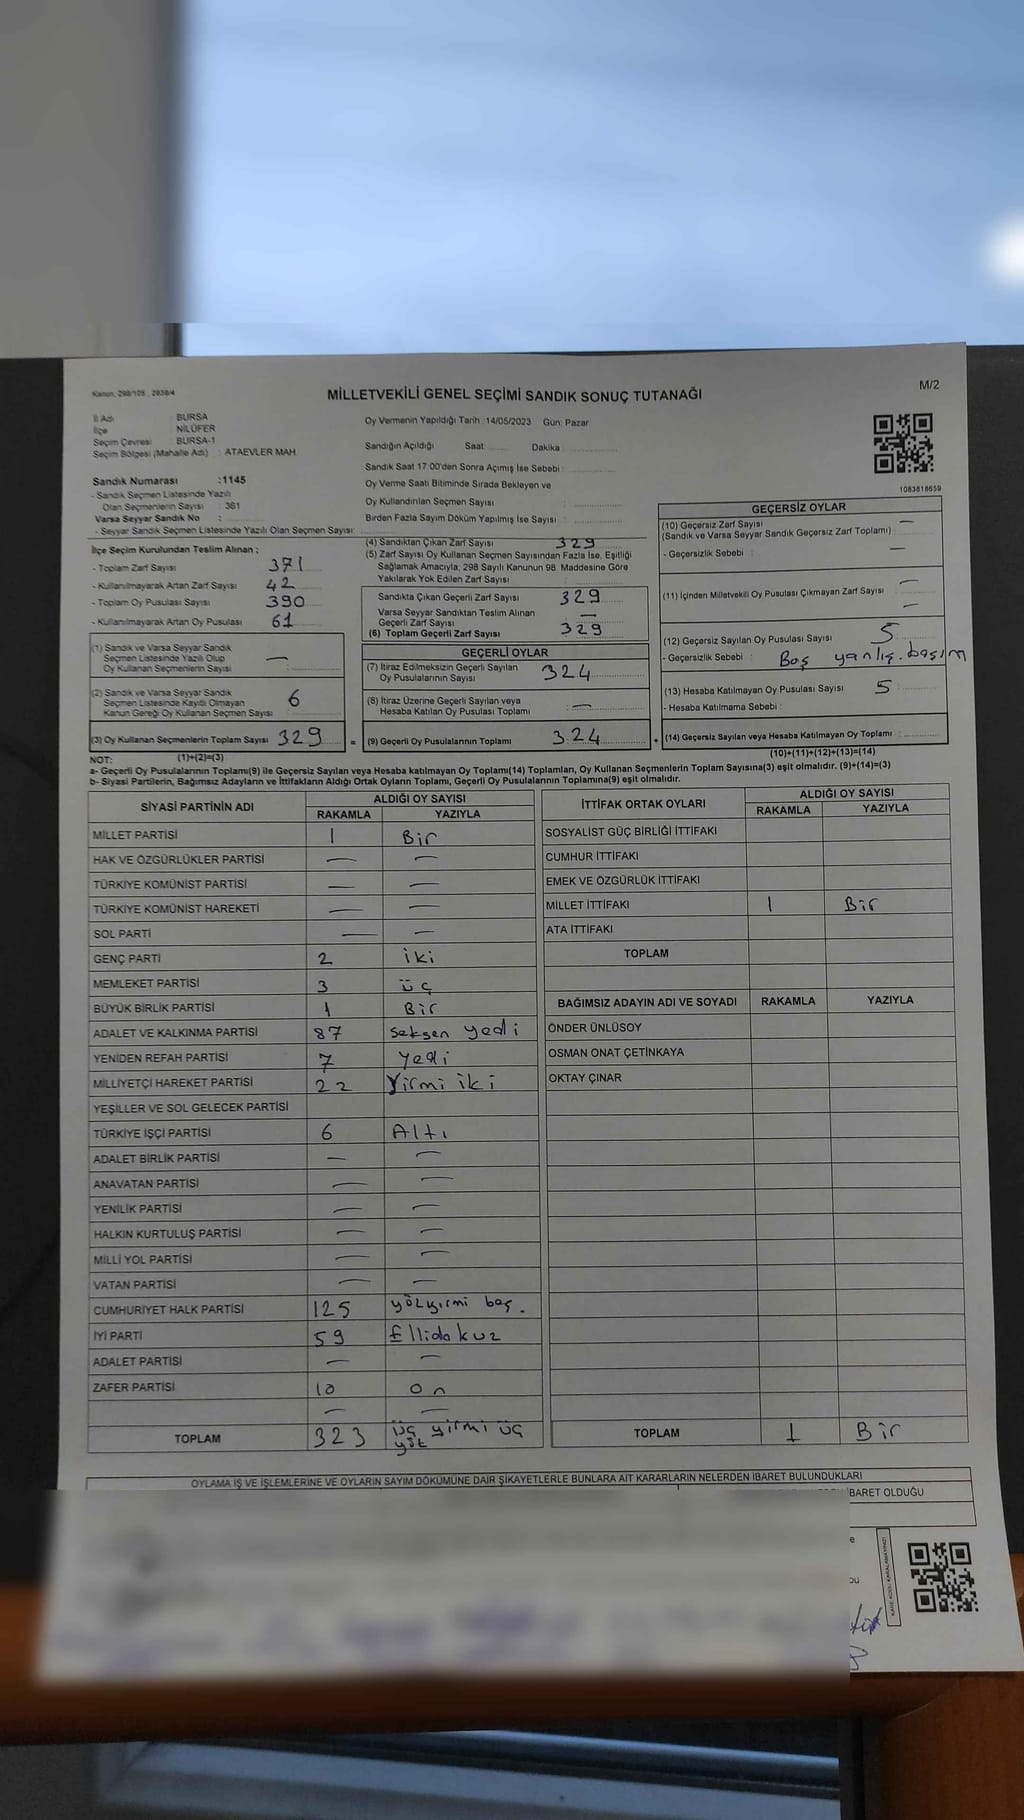 Kanun, 298/105 , 2839/4
MİLLETVEKİLİ GENEL SEÇİMİ SANDIK SONUÇ TUTANAĞI
M/2
İl Adı : BURSA
İlçe : NİLÜFER
Seçim Çevresi : BURSA-1
Seçim Bölgesi (Mahalle Adı) : ATAEVLER MAH
Oy Vermenin Yapıldığı Tarih :14/05/2023 Gün: Pazar
Sandığın Açıldığı Saat: Dakika
Sandık Saat 17:00'den Sonra Açımış İse Sebebi :
Oy Verme Saati Bitiminde Sırada Bekleyen ve
Oy Kullandırılan Seçmen Sayısı :
Birden Fazla Sayım Döküm Yapılmış İse Sayısı :
1083818659
Sandık Numarası :1145
- Sandık Seçmen Listesinde Yazılı
Olan Seçmenlerin Sayısı : 361
Varsa Seyyar Sandık No :
- Seyyar Sandık Seçmen Listesinde Yazılı Olan Seçmen Sayısı:
İlçe Seçim Kurulundan Teslim Alınan ;
- Toplam Zarf Sayısı 371
- Kullanılmayarak Artan Zarf Sayısı 42
- Toplam Oy Pusulası Sayısı 390
- Kullanılmayarak Artan Oy Pusulası 61
(1) Sandık ve Varsa Seyyar Sandık
Seçmen Listesinde Yazılı Olup
Oy Kullanan Seçmenlerin Sayısı : —
(2) Sandık ve Varsa Seyyar Sandık
Seçmen Listesinde Kayıtlı Olmayan
Kanun Gereği Oy Kullanan Seçmen Sayısı : 6
(3) Oy Kullanan Seçmenlerin Toplam Sayısı 329
(1)+(2)=(3)
(4) Sandıktan Çıkan Zarf Sayısı 329
(5) Zarf Sayısı Oy Kullanan Seçmen Sayısından Fazla İse, Eşitliği
Sağlamak Amacıyla, 298 Sayılı Kanunun 98. Maddesine Göre
Yakılarak Yok Edilen Zarf Sayısı :
Sandıkta Çıkan Geçerli Zarf Sayısı 329
Varsa Seyyar Sandıktan Teslim Alınan
Geçerli Zarf Sayısı —
(6) Toplam Geçerli Zarf Sayısı 329
GEÇERLİ OYLAR
(7) İtiraz Edilmeksizin Geçerli Sayılan
Oy Pusulalarının Sayısı 324
(8) İtiraz Üzerine Geçerli Sayılan veya
Hesaba Katılan Oy Pusulası Toplamı : —
= (9) Geçerli Oy Pusulalarının Toplamı 324 +
GEÇERSİZ OYLAR
(10) Geçersiz Zarf Sayısı —
(Sandık ve Varsa Seyyar Sandık Geçersiz Zarf Toplamı) :
- Geçersizlik Sebebi : —
(11) İçinden Milletvekili Oy Pusulası Çıkmayan Zarf Sayısı : —
—
(12) Geçersiz Sayılan Oy Pusulası Sayısı : 5
- Geçersizlik Sebebi : Boş yanlış.basım
(13) Hesaba Katılmayan Oy Pusulası Sayısı : 5
- Hesaba Katılmama Sebebi :
(14) Geçersiz Sayılan veya Hesaba Katılmayan Oy Toplamı :
(10)+(11)+(12)+(13)=(14)
NOT:
a- Geçerli Oy Pusulalarının Toplamı(9) ile Geçersiz Sayılan veya Hesaba katılmayan Oy Toplamı(14) Toplamları, Oy Kullanan Seçmenlerin Toplam Sayısına(3) eşit olmalıdır. (9)+(14)=(3)
b- Siyasi Partilerin, Bağımsız Adayların ve İttifakların Aldığı Ortak Oyların Toplamı, Geçerli Oy Pusulalarının Toplamına(9) eşit olmalıdır.
SİYASİ PARTİNİN ADI ALDIĞI OY SAYISI
RAKAMLA YAZIYLA
MİLLET PARTİSİ 1 Bir
HAK VE ÖZGÜRLÜKLER PARTİSİ — —
TÜRKİYE KOMÜNİST PARTİSİ — —
TÜRKİYE KOMÜNİST HAREKETİ — —
SOL PARTİ — —
GENÇ PARTİ 2 iki
MEMLEKET PARTİSİ 3 üç
BÜYÜK BİRLİK PARTİSİ 1 Bir
ADALET VE KALKINMA PARTİSİ 87 seksen yedi
YENİDEN REFAH PARTİSİ 7 yedi
MİLLİYETÇİ HAREKET PARTİSİ 22 Yirmi iki
YEŞİLLER VE SOL GELECEK PARTİSİ
TÜRKİYE İŞÇİ PARTİSİ 6 Altı
ADALET BİRLİK PARTİSİ — —
ANAVATAN PARTİSİ — —
YENİLİK PARTİSİ — —
HALKIN KURTULUŞ PARTİSİ — —
MİLLİ YOL PARTİSİ — —
VATAN PARTİSİ — —
CUMHURİYET HALK PARTİSİ 125 yüzyirmi beş.
İYİ PARTİ 59 Ellidokuz
ADALET PARTİSİ — —
ZAFER PARTİSİ 10 on
— —
TOPLAM 323 üç yirmi üç
yüz
İTTİFAK ORTAK OYLARI ALDIĞI OY SAYISI
RAKAMLA YAZIYLA
SOSYALİST GÜÇ BİRLİĞİ İTTİFAKI
CUMHUR İTTİFAKI
EMEK VE ÖZGÜRLÜK İTTİFAKI
MİLLET İTTİFAKI 1 Bir
ATA İTTİFAKI
TOPLAM
BAĞIMSIZ ADAYIN ADI VE SOYADI RAKAMLA YAZIYLA
ÖNDER ÜNLÜSOY
OSMAN ONAT ÇETİNKAYA
OKTAY ÇINAR
TOPLAM 1 Bir
OYLAMA İŞ VE İŞLEMLERİNE VE OYLARIN SAYIM DÖKÜMÜNE DAİR ŞİKAYETLERLE BUNLARA AİT KARARLARIN NELERDEN İBARET BULUNDUKLARI
İBARET OLDUĞU
KARE KODU KARALAMAYINIZ!